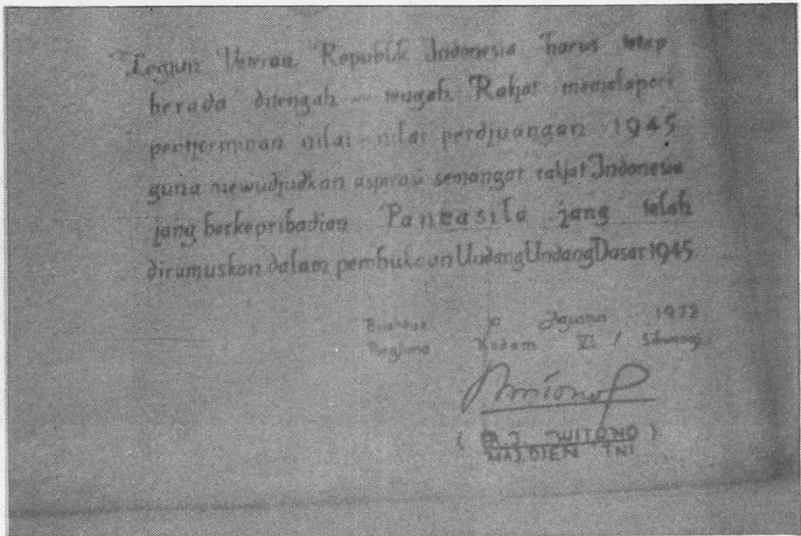 Legiun Veteran Republik Indonesia harus tetap
berada ditengah - tengah Rakjat memelopori
pentjerminan nilai - nilai perdjuangan 1945
guna mewudjudkan aspirasi semangat rakjat Indonesia
jang berkepribadian Pantjasila jang telah
dirumuskan dalam pembukaan Undang Undang Dasar 1945.
Agustus 1972
Panglima Kodam VI / Siliwangi
( A.J. WITONO ).
MAJ.DJEN TNI